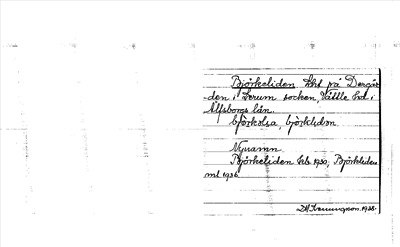 Björkeliden lht på Dergår-
den i Lerum socken, Vättle hd i
Älfsborgs län.
björkelia, björkliden
Nynamn
Björkeliden feb. 1930, Björkliden
ml 1936.
1938.